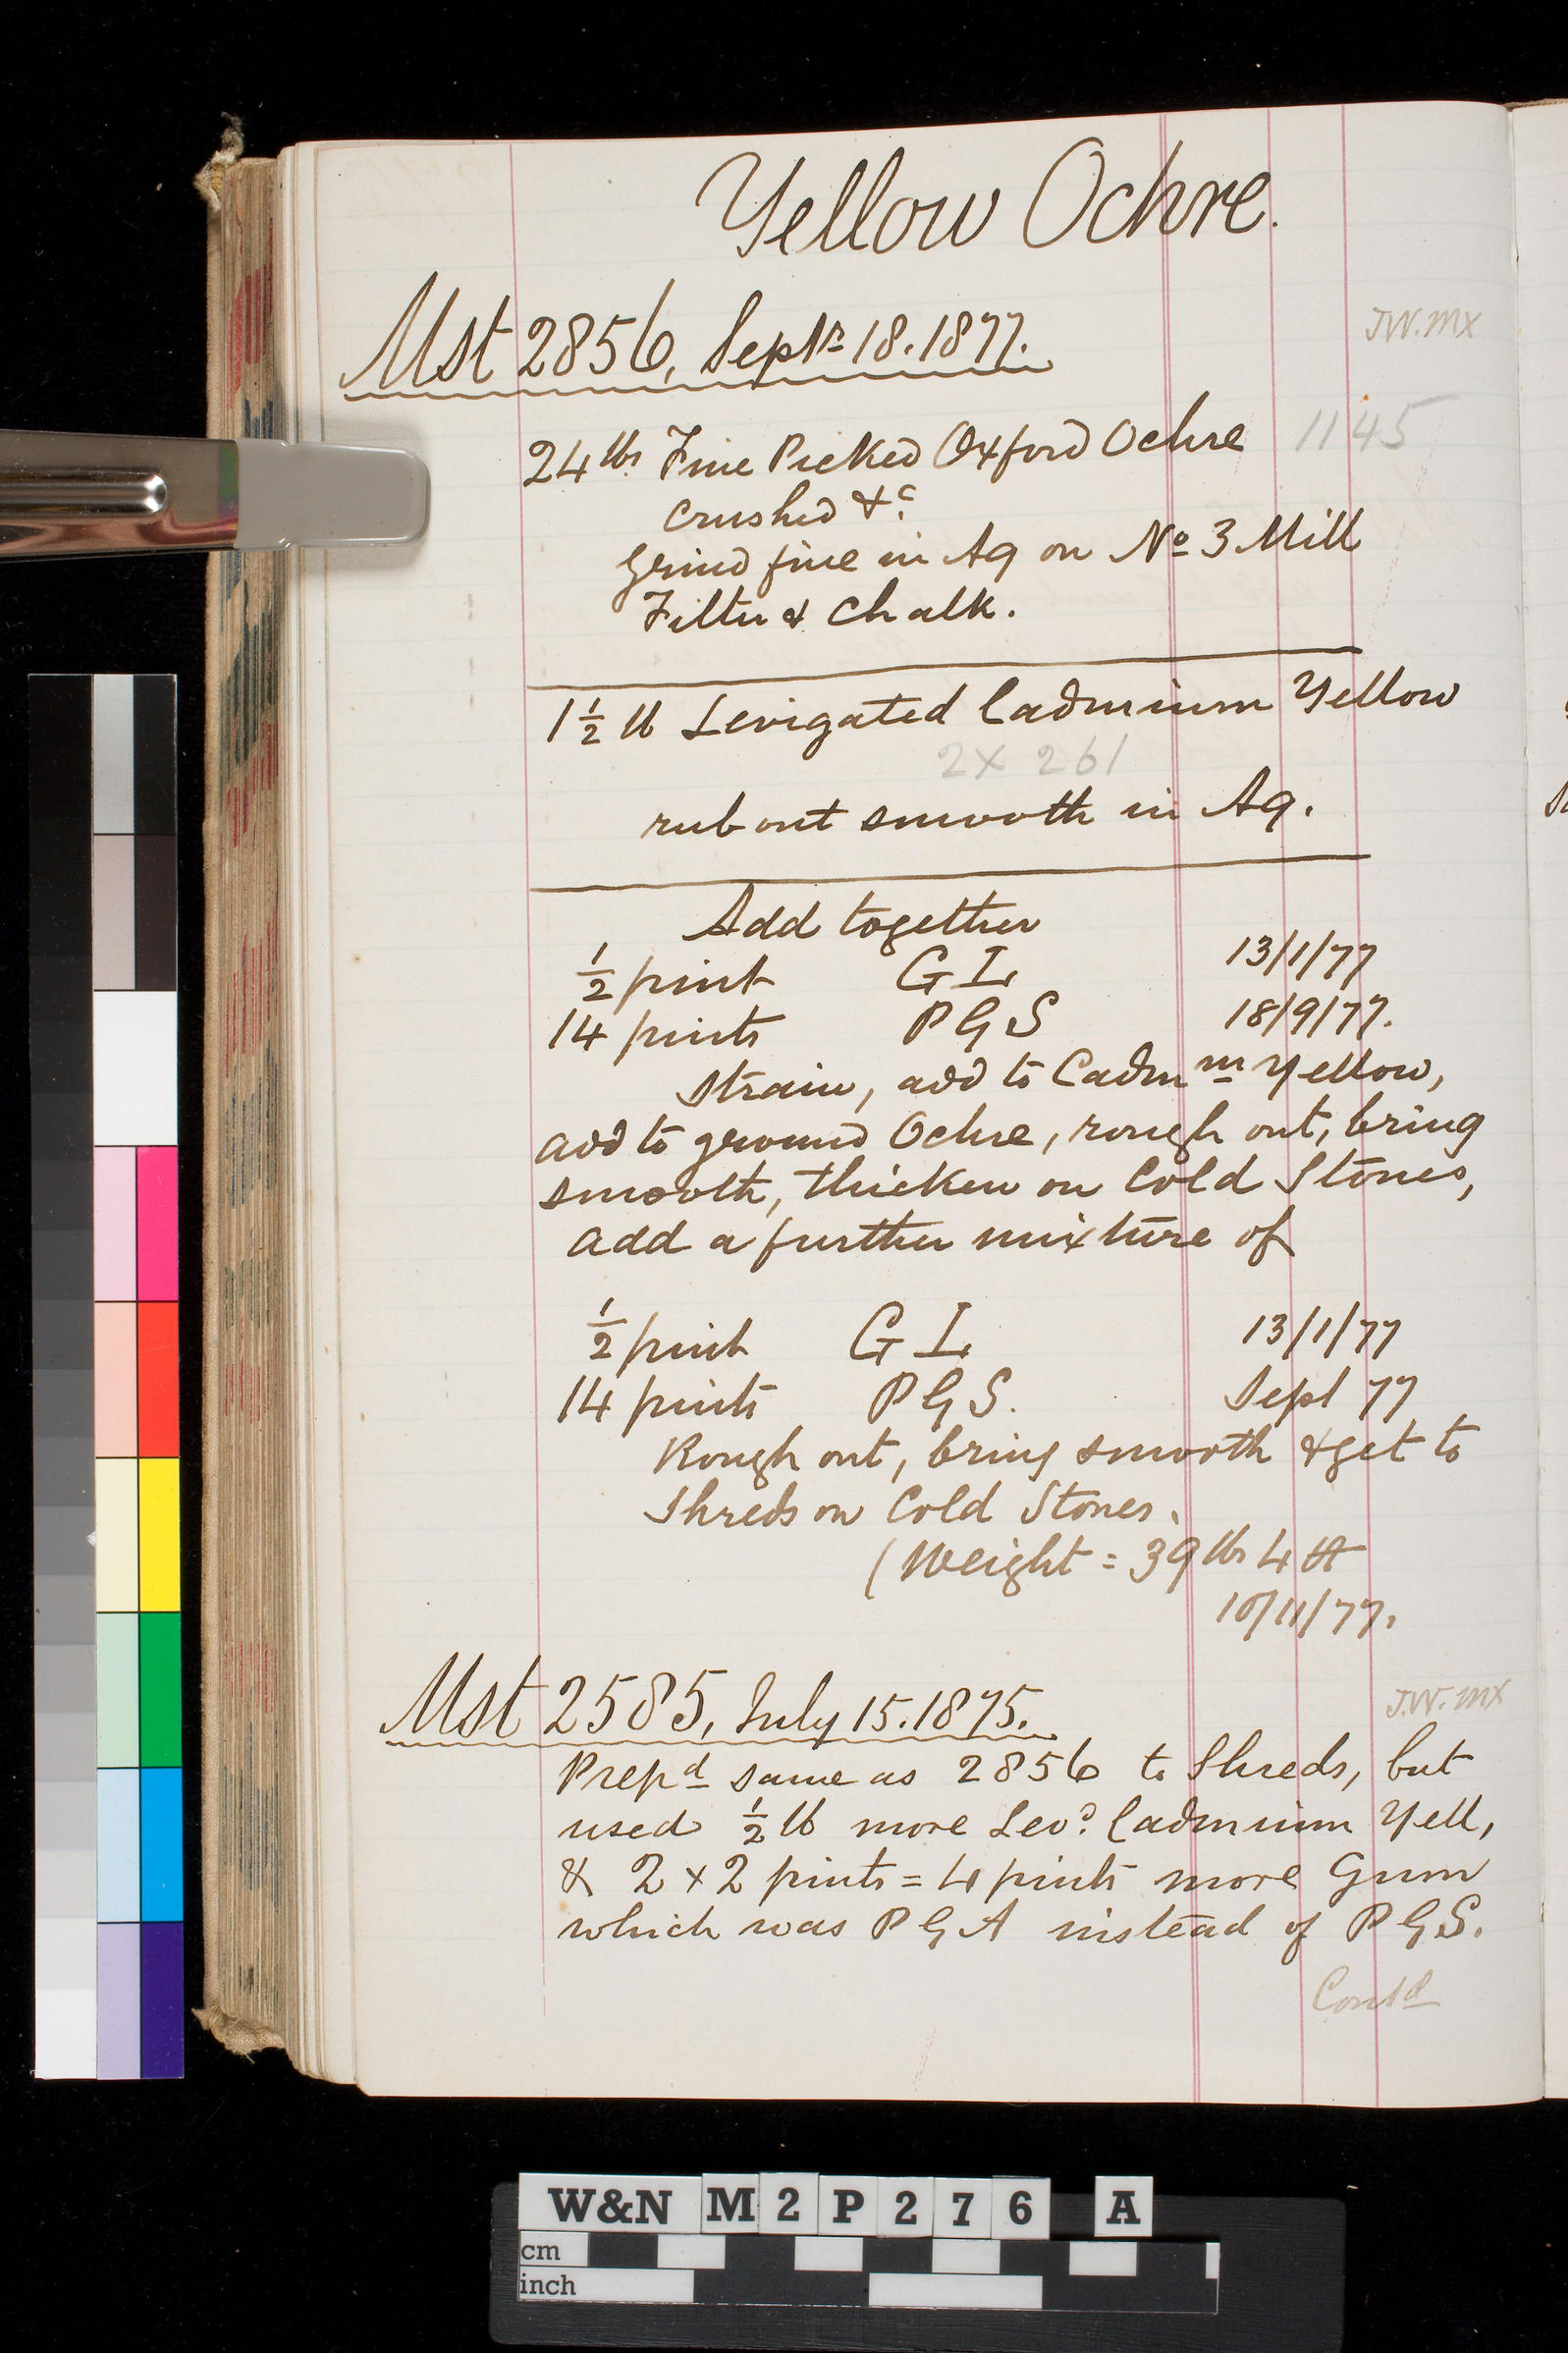 Yellow Ochre.
Mst 2856, Septr 18. 1877.
J.W. Mx
24 lbs Fine Picked Oxford Ochre 1145
crushed &c
grind fine in Aq on No 3 Mill
Filter & Chalk.
1 1/2 lb Levigated Cadmium Yellow
2 X 261
rub out smooth in Aq.
Add together
1/2 pint G I 13/1/77
14 pints P G S 18/9/77.
Strain, add to Cadmm Yellow,
add to ground Ochre, rough out, bring
smooth, thicken on Cold Stones,
add a further mixture of
1/2 pint G I 13/1/77
14 pints P G S. Sept 77
Rough out, bring smooth & get to
Shreds on Cold Stones.
(Weight = 39 lbs 4
10/11/77.
Mst 2585, July 15. 1875.
J.W. Mx
Prepd same as 2856 to Shreds, but
used 1/2 lb more Levd Cadmium Yell,
& 2 x 2 pints = 4 pints more Gum
which was P G A instead of P G S.
Contd
W&N M 2 P 2 7 6 A
cm
inch